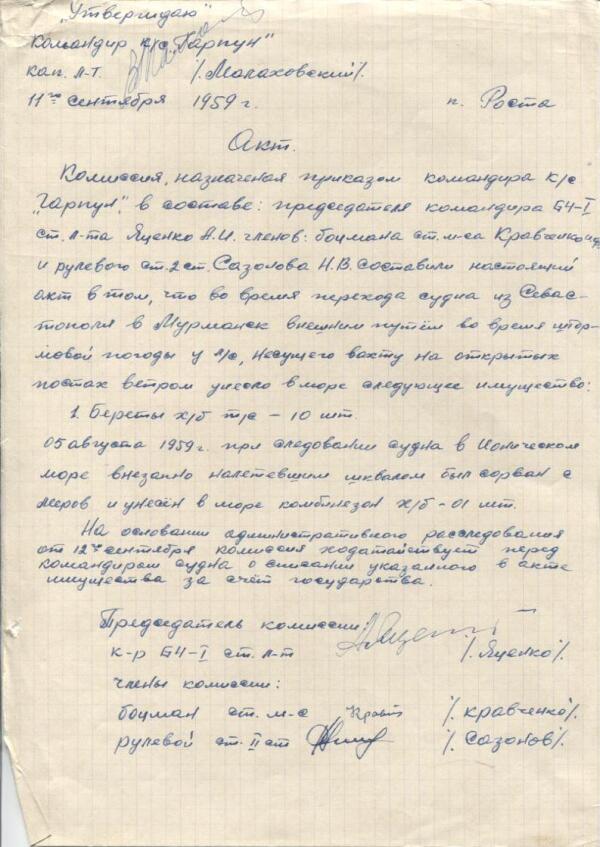 „Утверждаю"
Командир к/с „Гарпун"
кап. л-т. /. Малаховский /.
11го сентября 1959 г. п. Роста
Акт.
Комиссия, назначеная приказом командира к/с
„Гарпун", в составе: председателя командира БЧ-I
ст. л-та Яценко А.И. членов: боцмана ст. м-са Кравченко
и рулевого ст. 2 ст. Сазонова Н.В. составили настоящий
акт в том, что во время перехода судна из Севас-
тополя в Мурманск внешним путём во время штор-
мовой погоды у л/с, несущего вахту на открытых
постах ветром унесло в море следующее имущество:
1. Береты х/б т/с – 10 шт.
05 августа 1959 г. при следовании судна в Ионическом
море внезапно налетевшим шквалом был сорван с
лееров и унесён в море комбинезон х/б – 01 шт.
На основании административного расследования
от 12го сентября комиссия ходатайствует перед
командиром судна о списании указанного в акте
имущества за счёт государства.
Председатель комиссии:
к-р БЧ-I ст. л-т /. Яценко /.
члены комиссии:
боцман ст. м-с /. Кравченко /.
рулевой ст. II ст /. Сазонов /.